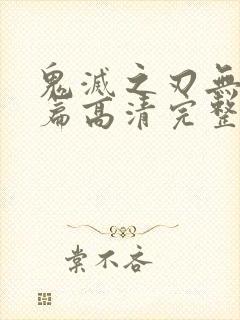 鬼滅之刃無
篇高清完整
棠不吝